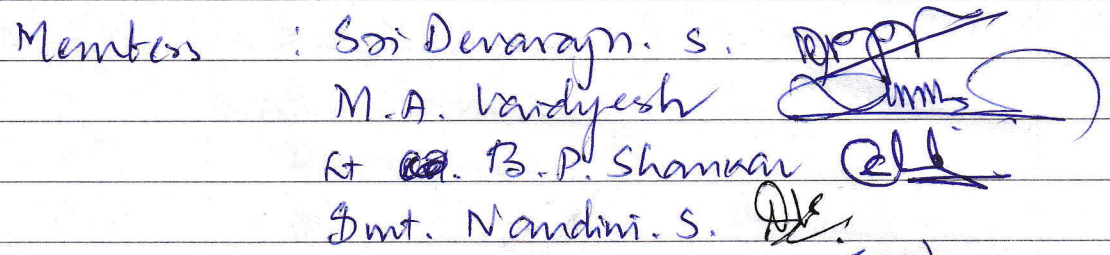 Members : Sri Devarajn. S.
M.A. Vaidyesh
Lt Col. B.P. Shankar
Smt. Nandini. S.